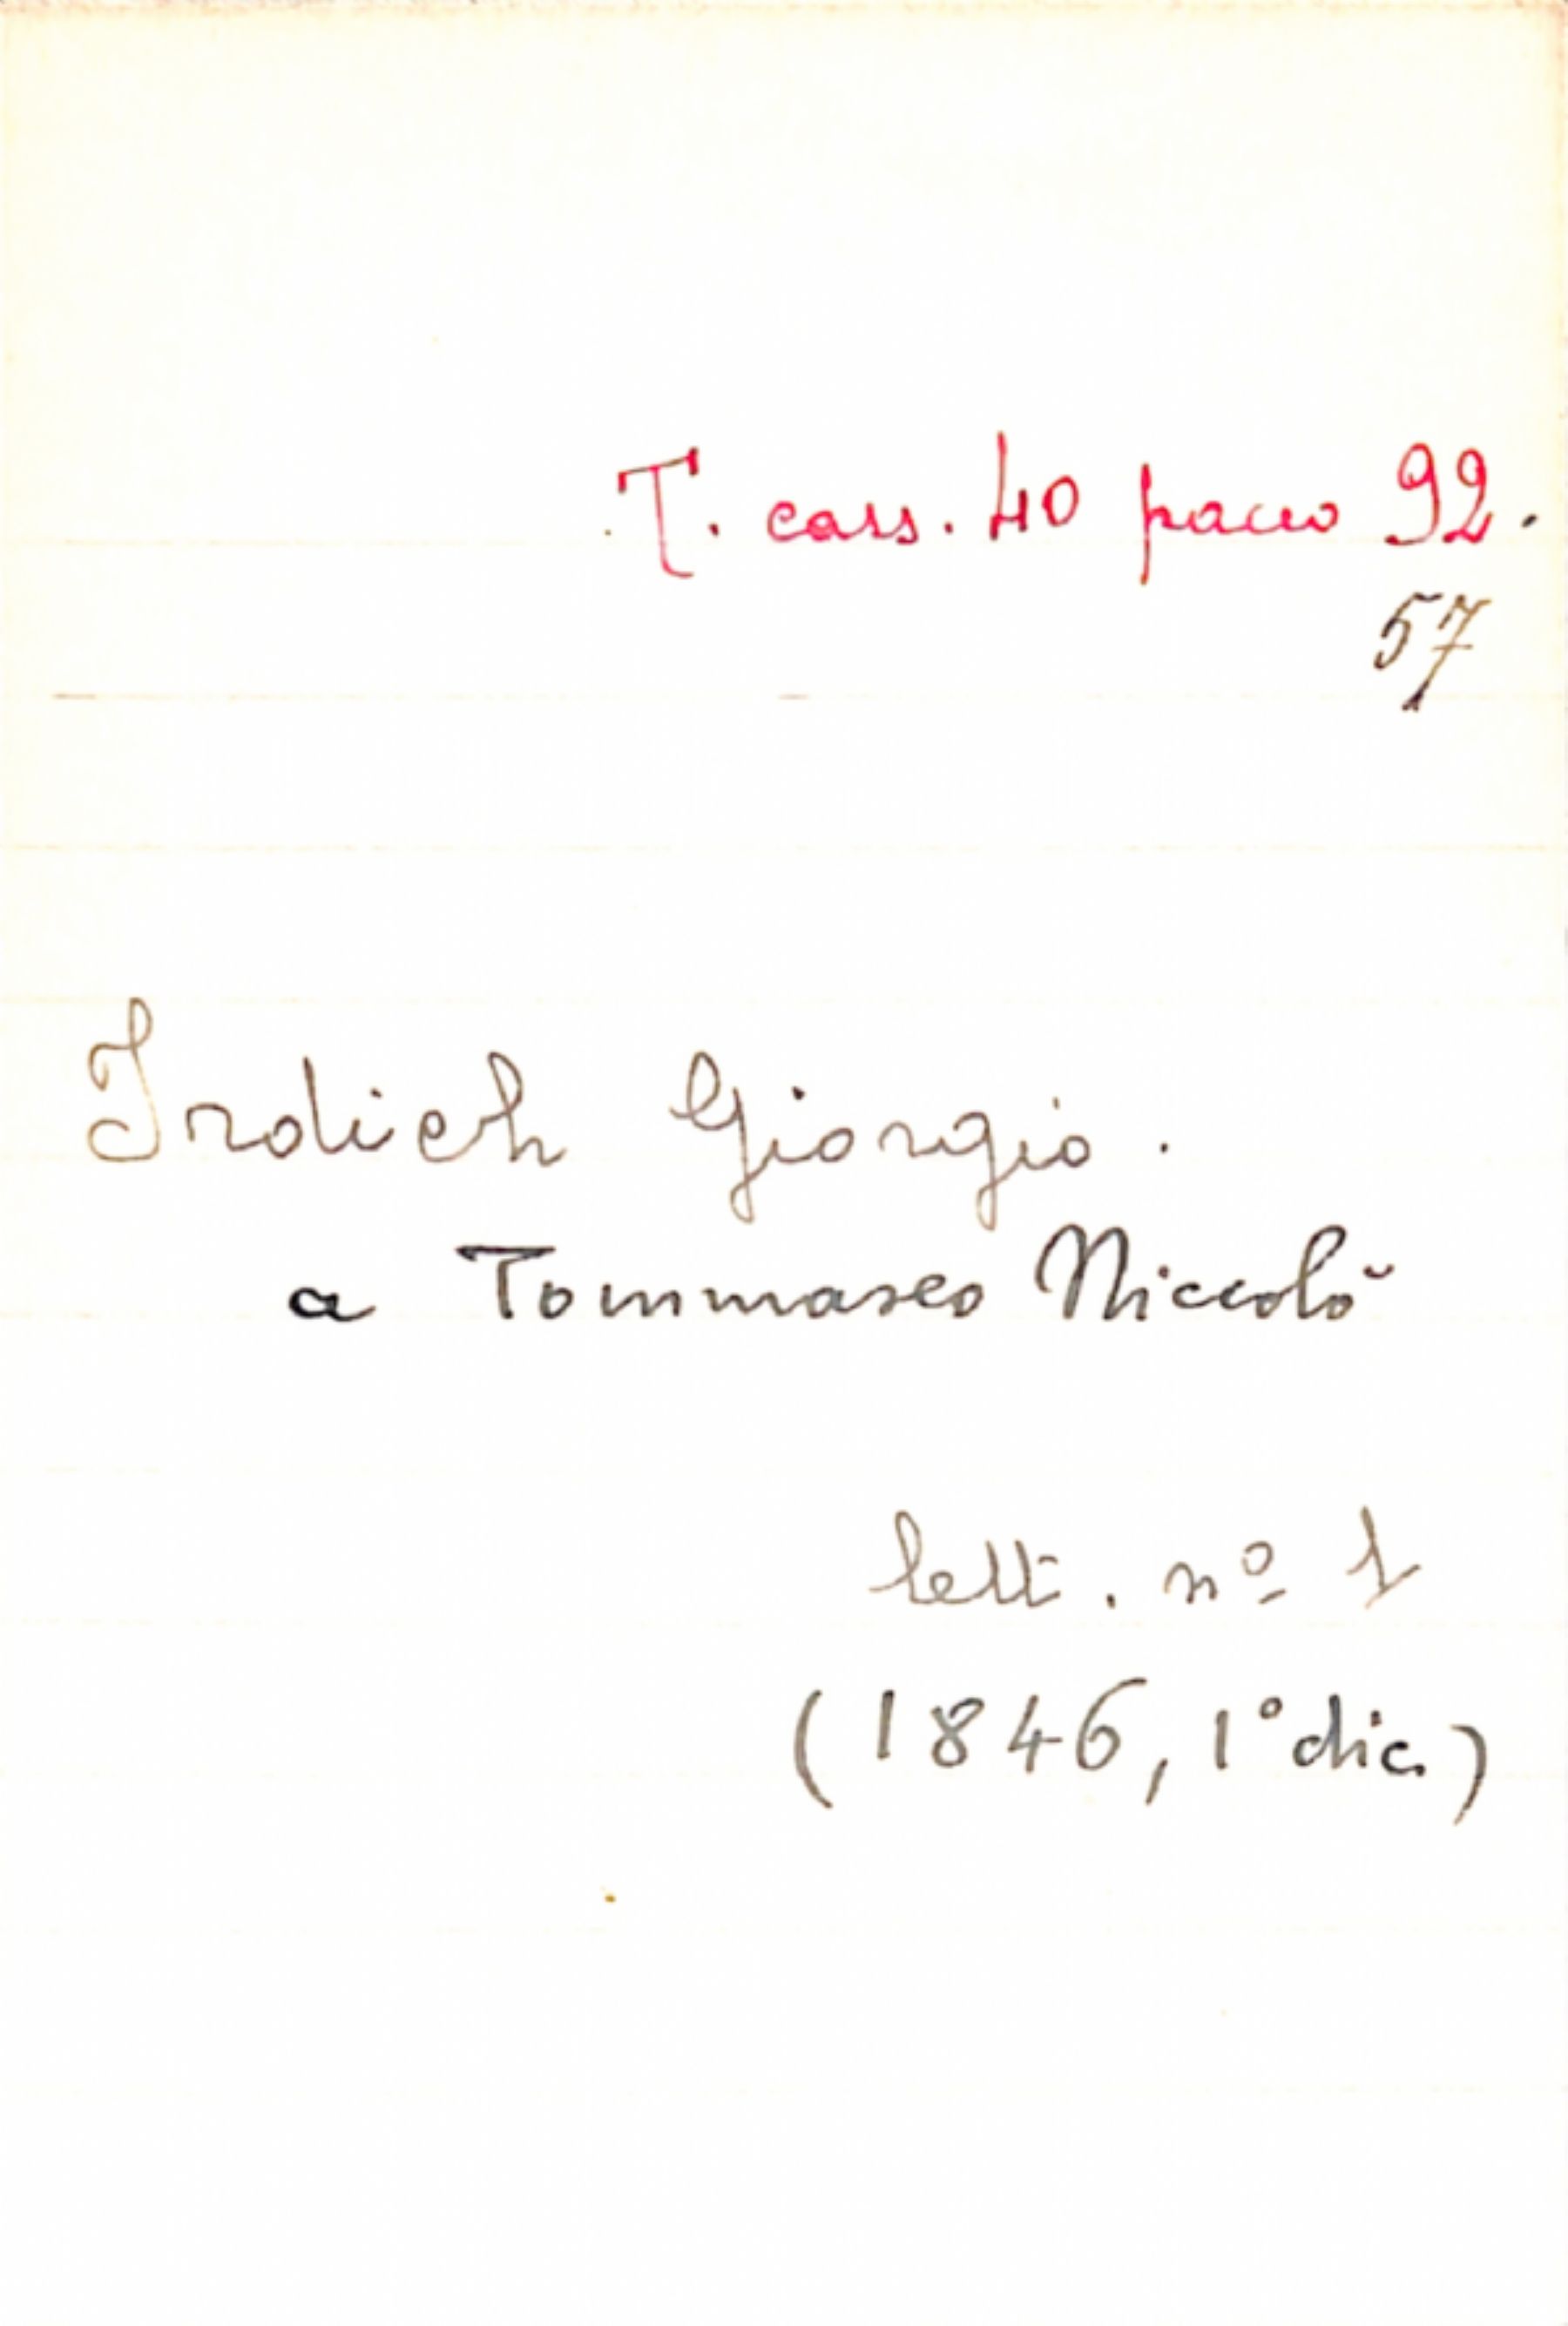 T. cass. 40 pacco 92.
57
Irolich Giorgio.
a Tommaseo Niccolò
lett. nº 1
(1846, 1° dic.)